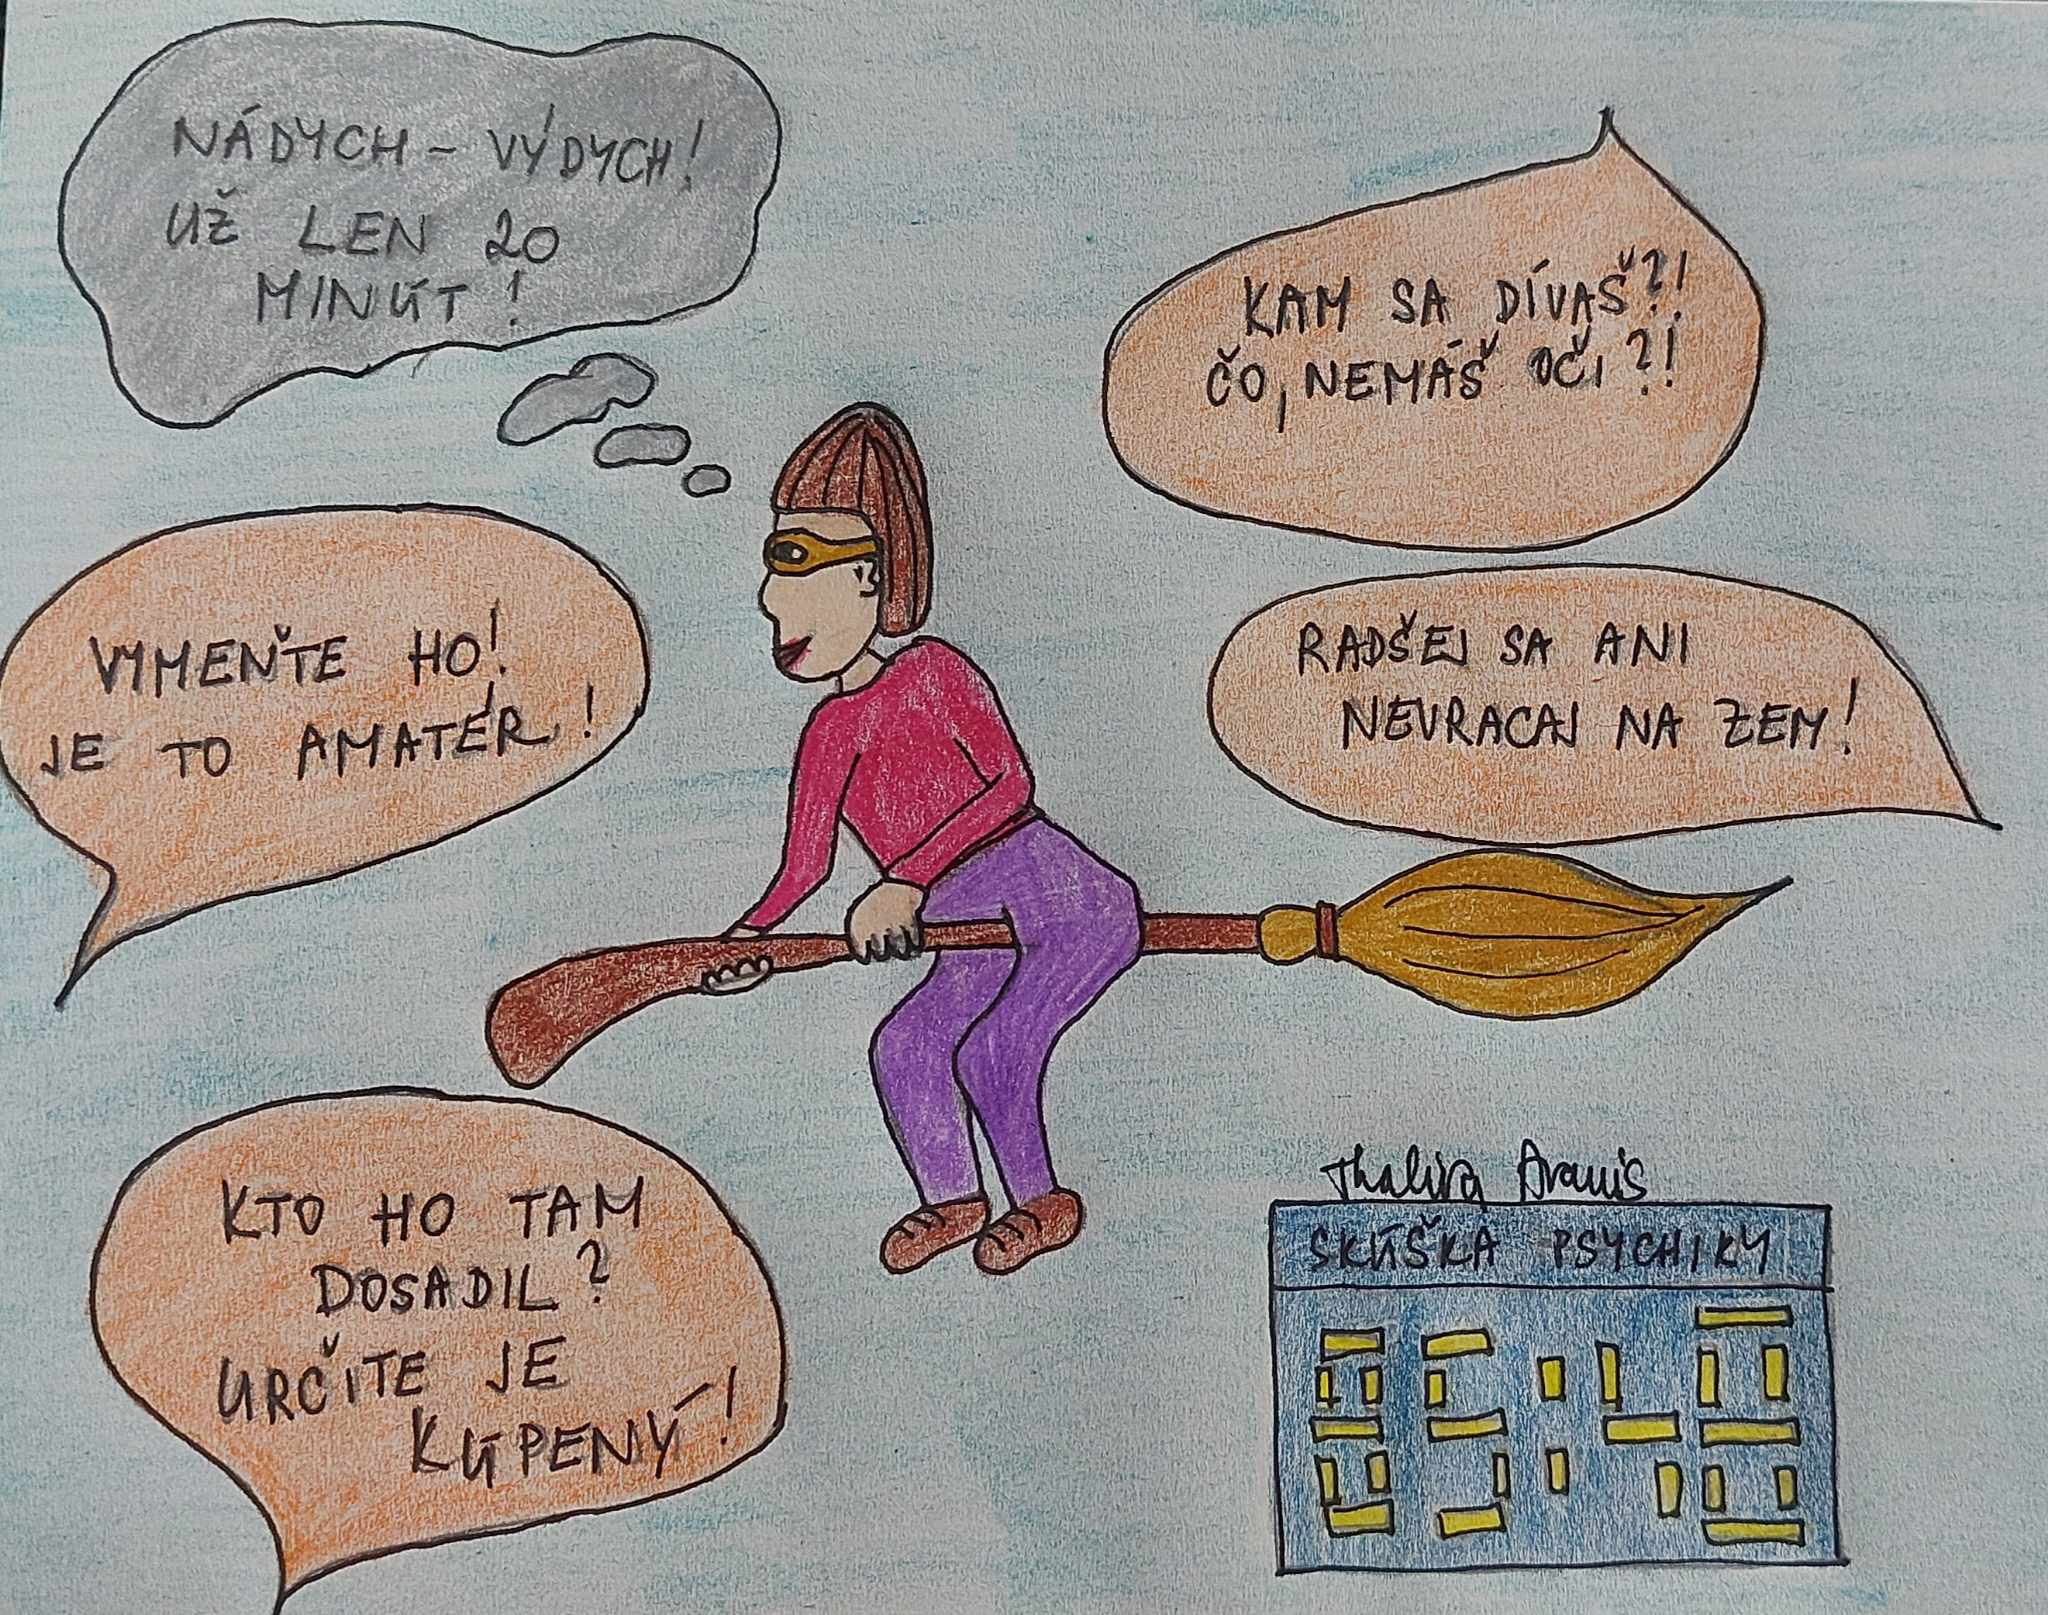 NÁDYCH - VÝDYCH!
UŽ LEN 20
MINÚT!
KAM SA DÍVAŠ?!
ČO, NEMÁŠ OČI?!
VYMEŇTE HO!
JE TO AMATÉR!
RADŠEJ SA ANI
NEVRACAJ NA ZEM!
KTO HO TAM
DOSADIL?
URČITE JE
KÚPENÝ!
Thalira Aramis
SKÚŠKA PSYCHIKY